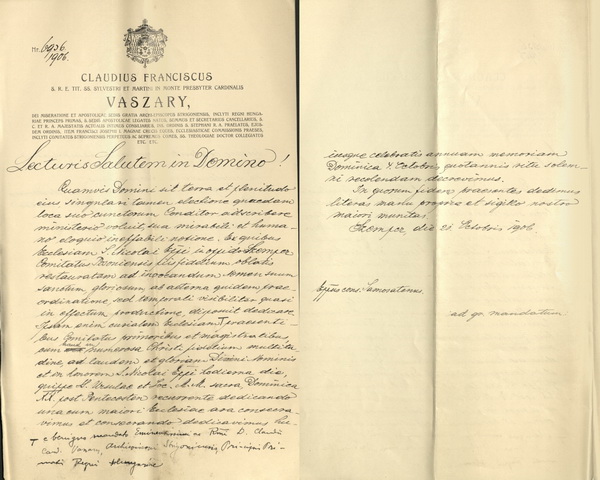 Nr. 6956
1906.
CLAUDIUS FRANCISCUS
S. R. E. TIT. SS. SYLVESTRI ET MARTINI IN MONTE PRESBYTER CARDINALIS
VASZARY,
DEI MISERATIONE ET APOSTOLICAE SEDIS GRATIA ARCHI-EPISCOPUS STRIGONIENSIS, INCLYTI REGNI HUNGA-
RIAE PRINCEPS PRIMAS, S. SEDIS APOSTOLICAE LEGATUS NATUS, SUMMUS ET SECRETARIUS CANCELLARIUS, S.
C. ET R. A. MAJESTATIS ACTUALIS INTIMUS CONSILIARIUS, INS. ORDINIS S. STEPHANI R. A. PRAELATUS, EJUS-
DEM ORDINIS, ITEM FRANCISCI JOSEPHI I. MAGNAE CRUCIS EQUES, ECCLESIASTICAE COMMISSIONIS PRAESES,
INCLYTI COMITATUS STRIGONIENSIS PERPETUUS AC SUPREMUS COMES, SS. THEOLOGIAE DOCTOR COLLEGIATUS
ETC. ETC.
Lecturis Salutem in Domino!
Quamvis Domini sit terra et plenitudo
eius singulari tamen electione quaedam
loca suo cunctorum Conditor adscribere
ministerio voluit sua mirabili et huma-
no eloquio ineffabili ratione. Ex quibus
Ecclesiam S. Nicolai Eppi in oppido Szempcz
Comitatus Posoniensis fidelium oblatis
restauratam ad invocandum nomen suum
sanctum gloriosum, ab aeterna quidem prae-
ordinatione, sed temporali visibilitar quasi
in effectum productione, disponit dedicare.
Ipsam enim curialem Ecclesiam T praesenti-
bus Comitatus primoribus et magistratibus
cum numerosa Christi fidelium multitu-
dine, ad laudem et gloriam Divini Nominis
et in honorem S. Nicolai Eppi hodierna die,
quippe S. Ursulae et Soc. M. M. sacra Dominica
XX. post Pentecosten recurrente dedicando
una cum maiori Ecclesiae ara conserva-
vimus et consecrando dedicavimus hu-
T e benigno mandato Eminentissimi ac Rmi D. Claudii
Card. Vaszary, Archiepiscopi Strigoniensis, Principis Pri-
matis Regni Hungariae
iusque celebratis annuam memoriam
Dominica Octobris quotannis ritu solem-
ni recolendam decrevimus.
In quorum fidem praesentes dedimus
literas manu propria et sigillo nostro
maiori munitas.
Szempcz die 21 Octobris 1906.
Eppus cons: Samosatenus.
ad gr. mandatum